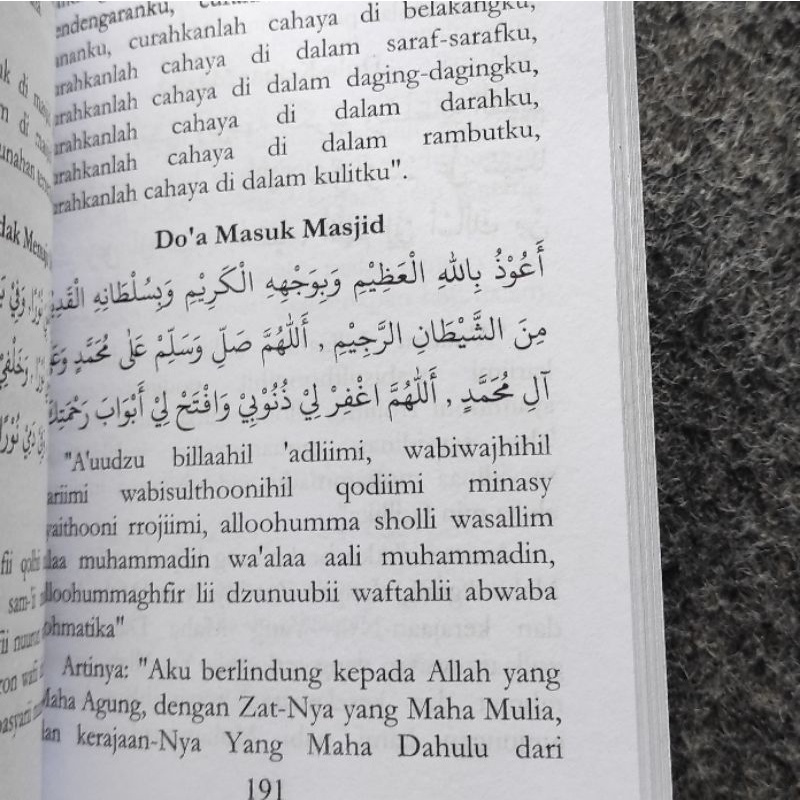 cahaya di belakangku,
curahkanlah cahaya di dalam saraf-sarafku,
cahaya di dalam daging-dagingku,
cahaya di dalam darahku,
cahaya di dalam rambutku,
cahaya di dalam kulitku".
Do'a Masuk Masjid
أَعُوْذُ بِاللهِ الْعَظِيْمِ وَبِوَجْهِهِ الْكَرِيْمِ وَبِسُلْطَانِهِ
مِنَ الشَّيْطَانِ الرَّجِيْمِ , أَللّٰهُمَّ صَلِّ وَسَلِّمْ عَلٰى مُحَمَّدٍ
آلِ مُحَمَّدٍ , أَللّٰهُمَّ اغْفِرْ لِيْ ذُنُوْبِيْ وَافْتَحْ لِيْ أَبْوَابَ رَحْمَتِكَ
"A'uudzu billaahil 'adliimi, wabiwajhihil
ariimi wabisulthoonihil qodiimi minasy
yaithooni rrojiimi, alloohumma sholli wasallim
alaa muhammadin wa'alaa aali muhammadin,
alloohummaghfir lii dzunuubii waftahlii abwaba
ohmatika"
Artinya: "Aku berlindung kepada Allah yang
Maha Agung, dengan Zat-Nya yang Maha Mulia,
dan kerajaan-Nya Yang Maha Dahulu dari
191